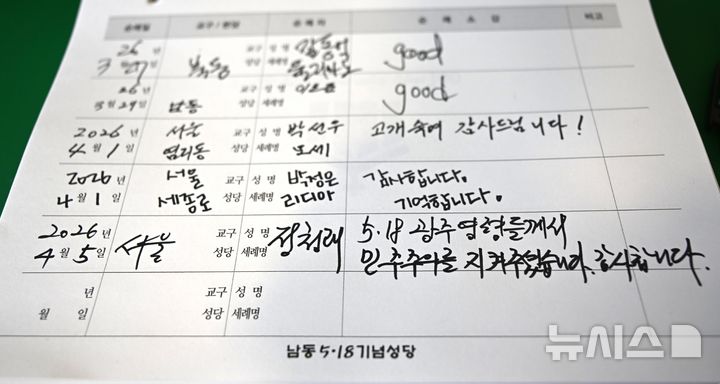 순례일 교구 / 본당 순례자 순례소감 비고
26년 교구 성명 good
3월 27일 성당 세례명
26년 교구 성명 good
3월 29일 남동 성당 세례명
2026년 서울 교구 성명 박선우 고개숙여 감사드립니다!
4월 1일 염리동 성당 세례명 모세
2026년 서울 교구 성명 박정은 감사합니다.
4월 1일 세종로 성당 세례명 리디아 기억합니다.
2026년 서울 교구 성명 정청래 5.18 광주 영령들께서
4월 5일 성당 세례명 민주주의를 지켜주었습니다. 감사합니다.
년 교구 성명
월 일 성당 세례명
남동 5·18기념성당
뉴시스